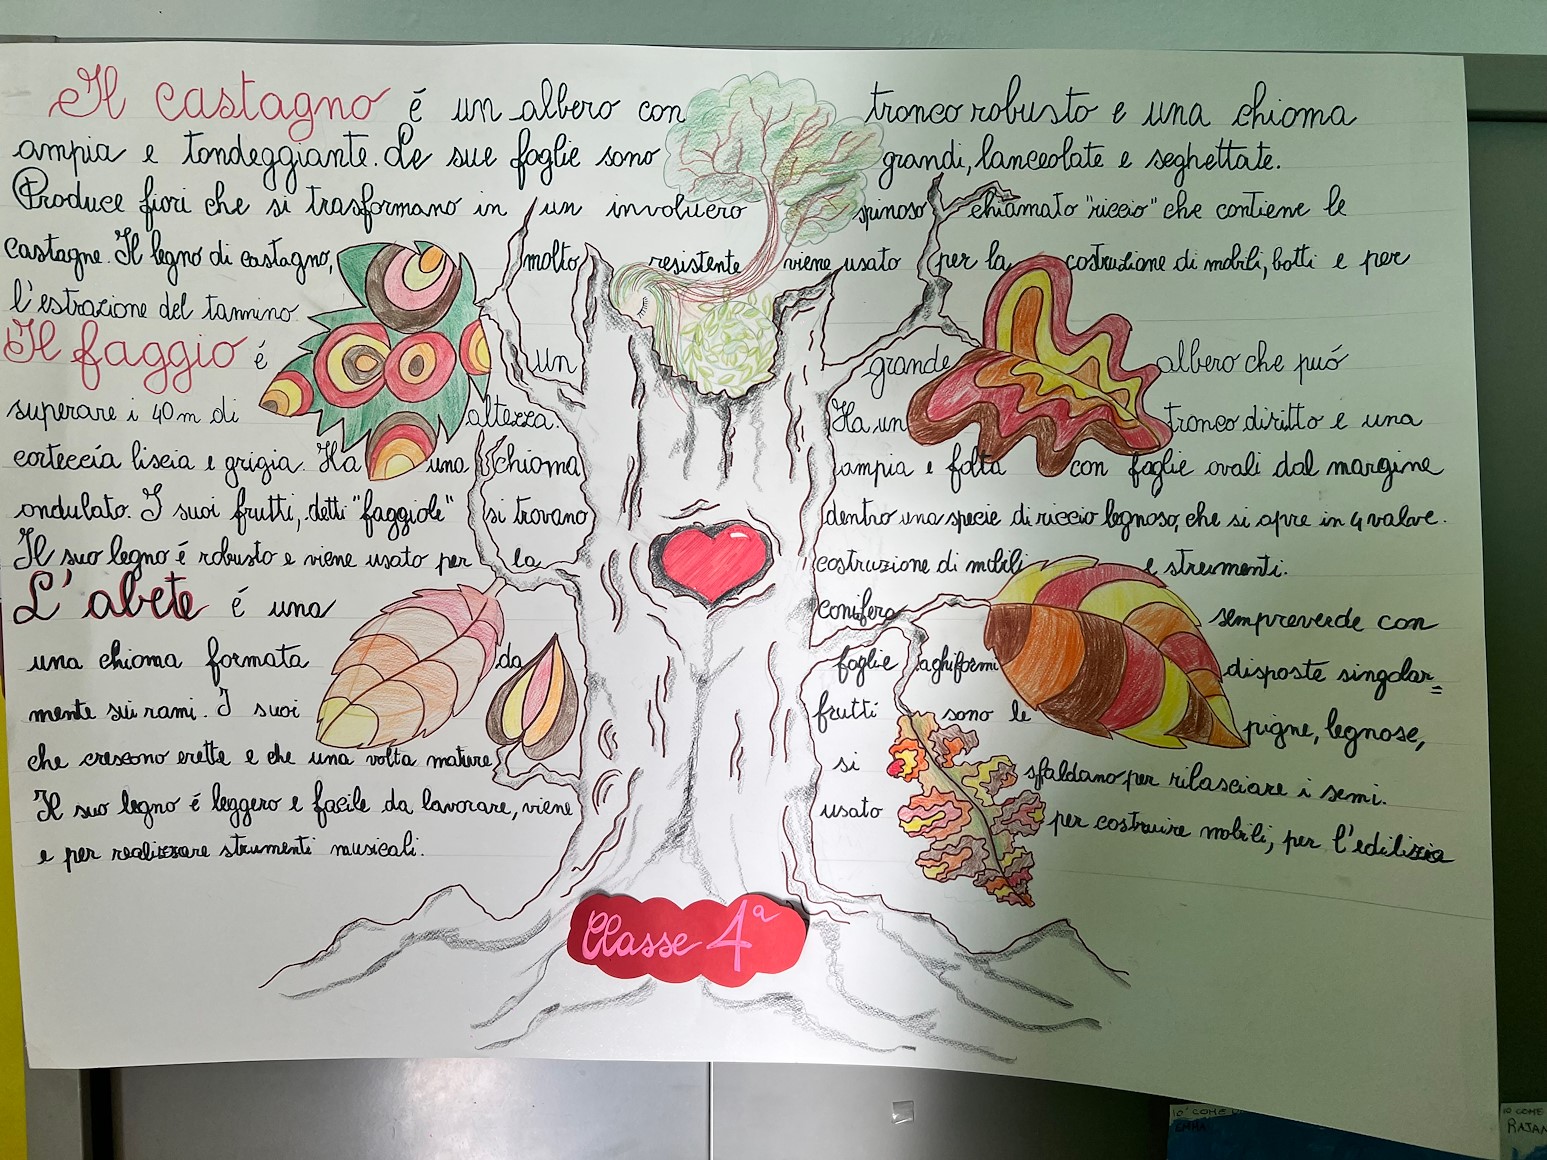 Il castagno é un albero con tronco robusto e una chioma
ampia e tondeggiante. Le sue foglie sono grandi, lanceolate e seghettate.
Produce fiori che si trasformano in un involucro spinoso chiamato "riccio" che contiene le
castagne. Il legno di castagno, molto resistente viene usato per la costruzione di mobili, botti e per
l'estrazione del tannino.
Il faggio é un grande albero che puó
superare i 40 m di altezza. Ha un tronco diritto e una
corteccia liscia e grigia. Ha una chioma ampia e folta con foglie ovali dal margine
ondulato. I suoi frutti, detti "faggiole" si trovano dentro una specie di riccio legnoso, che si apre in 4 valve.
Il suo legno é robusto e viene usato per la costruzione di mobili e strumenti.
L'abete é una conifera sempreverde con
una chioma formata da foglie aghiformi disposte singolar=
mente sui rami. I suoi frutti sono le pigne, legnose,
che crescono erette e che una volta mature si sfaldano per rilasciare i semi.
Il suo legno é leggero e facile da lavorare, viene usato per costruire mobili, per l'edilizia
e per realizzare strumenti musicali.
Classe 4ª
10 COME
EMMA
10 COME
RAJAN